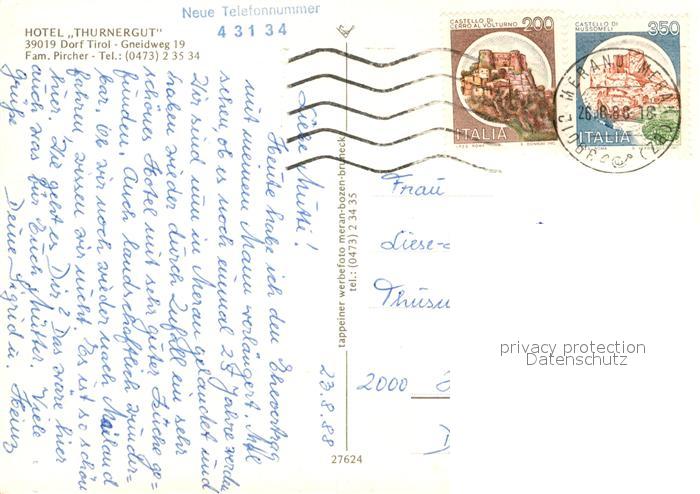 Neue Telefonnummer
4 31 34
HOTEL „THURNERGUT"
39019 Dorf Tirol - Gneidweg 19
Fam. Pircher - Tel.: (0473) 2 35 34
Liebe Mutti!
Heute habe ich den Ehevertrag
mit meinem Mann verlängert. Mal
sehen, ob es noch einmal 25 Jahre werden
Wir sind nun in Meran gelandet und
haben wieder durch Zufall ein sehr
schönes Hotel mit sehr guter Küche ge=
funden. Auch landschaftlich wunder=
bar. Ob wir noch wieder nach Mailand
fahren wissen wir nicht. Es ist so schön
hier. Wie geht es Dir? Das wäre hier
auch was für Euch Mütter. Viele
Grüße Deine Sigrid u. Heinz
23.8.88
tappeiner werbefoto meran-bozen-bruneck
tel.: (0473) 2 34 35
27624
CASTELLO DI
CERRO AL VOLTURNO
200
ITALIA
CASTELLO DI
MUSSOMELI
350
ITALIA
MERANO MERA
(BZ)
Frau
Liese-
Thusn
2000
privacy protection
Datenschutz